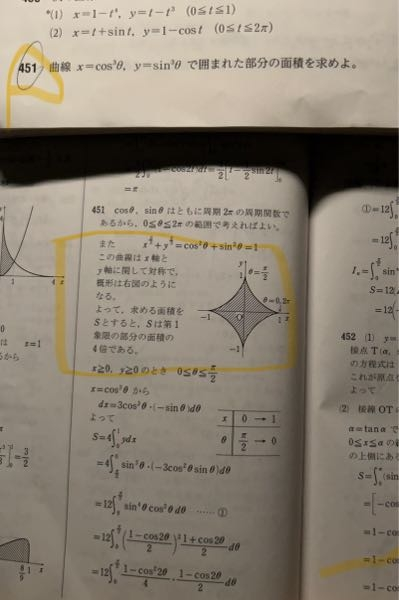 *(1) x=1-t⁴, y=t-t³ (0≦t≦1)
(2) x=t+sint, y=1-cost (0≦t≦2π)
451 曲線 x=cos³θ, y=sin³θ で囲まれた部分の面積を求めよ。
=π
451 cosθ, sinθ はともに周期 2π の周期関数で
あるから, 0≦θ≦2π の範囲で考えればよい。
また x^{2/3}+y^{2/3}=cos²θ+sin²θ=1
この曲線は x 軸と
y 軸に関して対称で,
概形は右図のように
なる。
よって, 求める面積を
S とすると, S は第1
象限の部分の面積の
4倍である。
y
1
θ=π/2
θ=0, 2π
-1
O
1
x
-1
x≧0, y≧0 のとき 0≦θ≦π/2
x=cos³θ から
dx=3cos²θ·(-sinθ)dθ
よって
x 0 → 1
θ π/2 → 0
S=4∫₀¹ydx
=4∫_{π/2}^{0} sin³θ·(-3cos²θsinθ)dθ
=12∫₀^{π/2} sin⁴θcos²θdθ …… ①
=12∫₀^{π/2}((1-cos2θ)/2)²(1+cos2θ)/2 dθ
=12∫₀^{π/2}(1-cos²2θ)/4·(1-cos2θ)/2 dθ
4
x
x=1
=3/2
8/9
1
x
①=12∫
=12∫
S=12
452 (1) y=
接点 T(
の方程式は
これが原点
(2) 接線 OT
α=tanα で
0≦x≦α の
の上側にある
S=∫
=[-cos
=1-cos
=1-cos
=1-cos